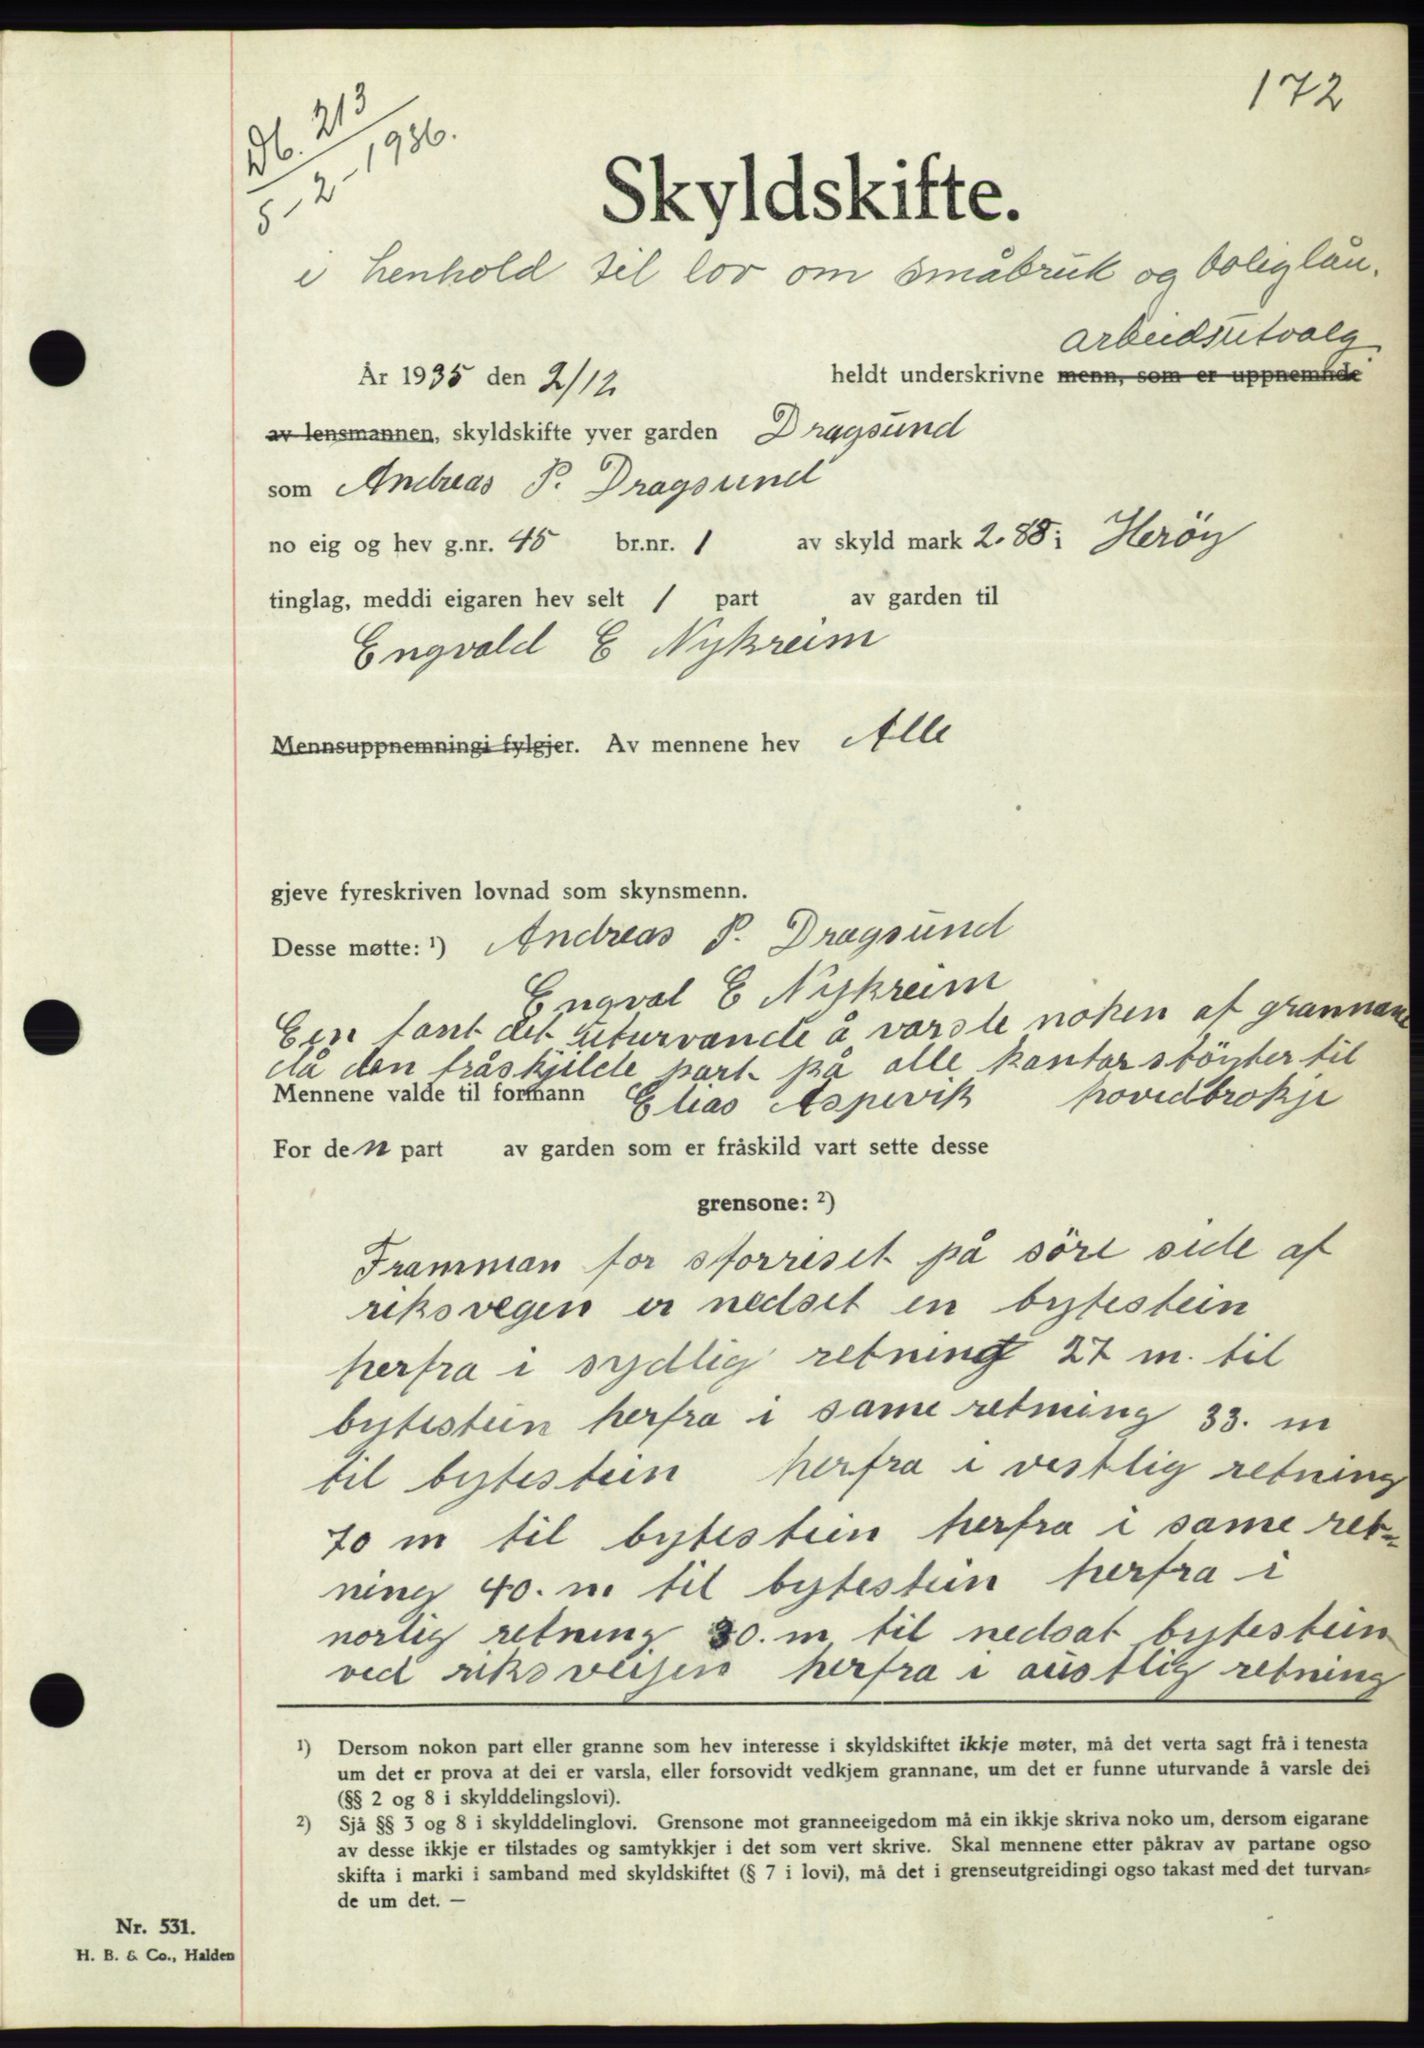 172
Db. 213
5-2-1936.
Skyldskifte.
i henhold til lov om småbruk og boliglån.
arbeidsutvalg
År 1935 den 2/12 heldt underskrivne menn, som er uppnemnde
av lensmannen, skyldskifte yver garden Dragsund
som Andreas P. Dragsund
no eig og hev g.nr. 45 br.nr. 1 av skyld mark 2.88 i Heröy
tinglag, meddi eigaren hev selt 1 part av garden til
Engvald E Nykreim
Mennsuppnemningi fylgjer. Av mennene hev Alle
gjeve fyreskriven lovnad som skynsmenn.
Desse møtte: ¹) Andreas P. Dragsund
Engval E Nykreim
Ein fant det uturvande å varsle noken af grannane
då den fråskjilde part på alle kantar stöyter til
Mennene valde til formann Elias Aspevik hovedbrokje
For den part av garden som er fråskild vart sette desse
grensone: ²)
Framman for storreset på söre side af
riksvegen er nedset en bytestein
herfra i sydlig retning 27 m. til
bytestein herfra i same retning 33. m
til bytestein herfra i vestlig retning
70 m til bytestein herfra i same ret-
ning 40. m til bytestein herfra i
norlig retning 30. m til nedsat bytestein
ved riksveijen herfra i austlig retning
¹) Dersom nokon part eller granne som hev interesse i skyldskiftet ikkje møter, må det verta sagt frå i tenesta
um det er prova at dei er varsla, eller forsovidt vedkjem grannane, um det er funne uturvande å varsle dei
(§§ 2 og 8 i skylddelingslovi).
²) Sjå §§ 3 og 8 i skylddelinglovi. Grensone mot granneeigedom må ein ikkje skriva noko um, dersom eigarane
av desse ikkje er tilstades og samtykkjer i det som vert skrive. Skal mennene etter påkrav av partane ogso
skifta i marki i samband med skyldskiftet (§ 7 i lovi), må det i grenseutgreidingi ogso takast med det turvan-
de um det. —
Nr. 531.
H. B. & Co., Halden